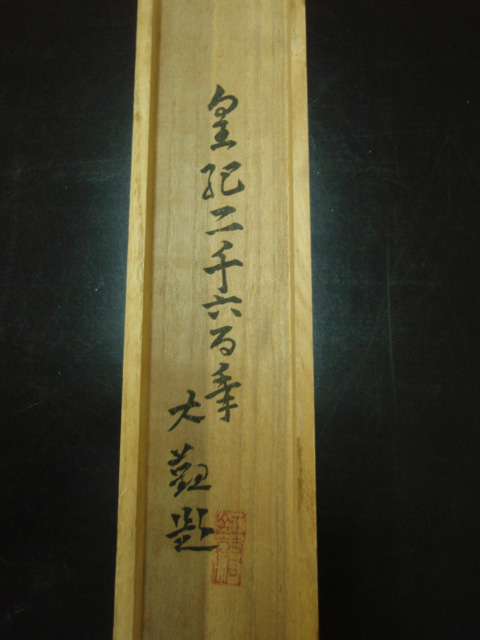 皇紀二千六百年
大観題